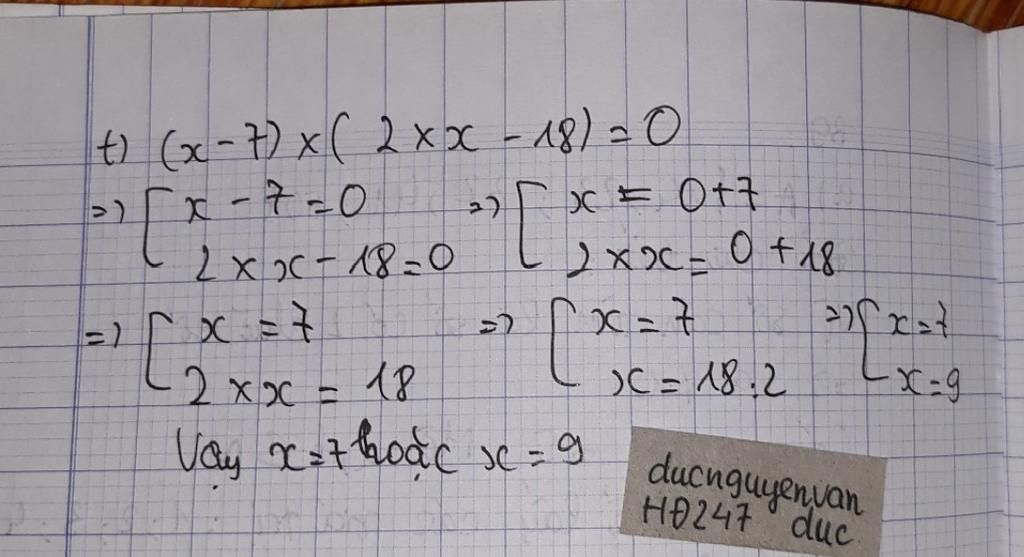 t) (x - 7) × ( 2 × x - 18) = 0
=> [ x - 7 = 0 => [ x = 0 + 7
2 × x - 18 = 0 2 × x = 0 + 18
=> [ x = 7 => [ x = 7 => [ x = 7
2 × x = 18 x = 18 : 2 x = 9
Vậy x = 7 hoặc x = 9
ducnguyenvan
HĐ247 duc